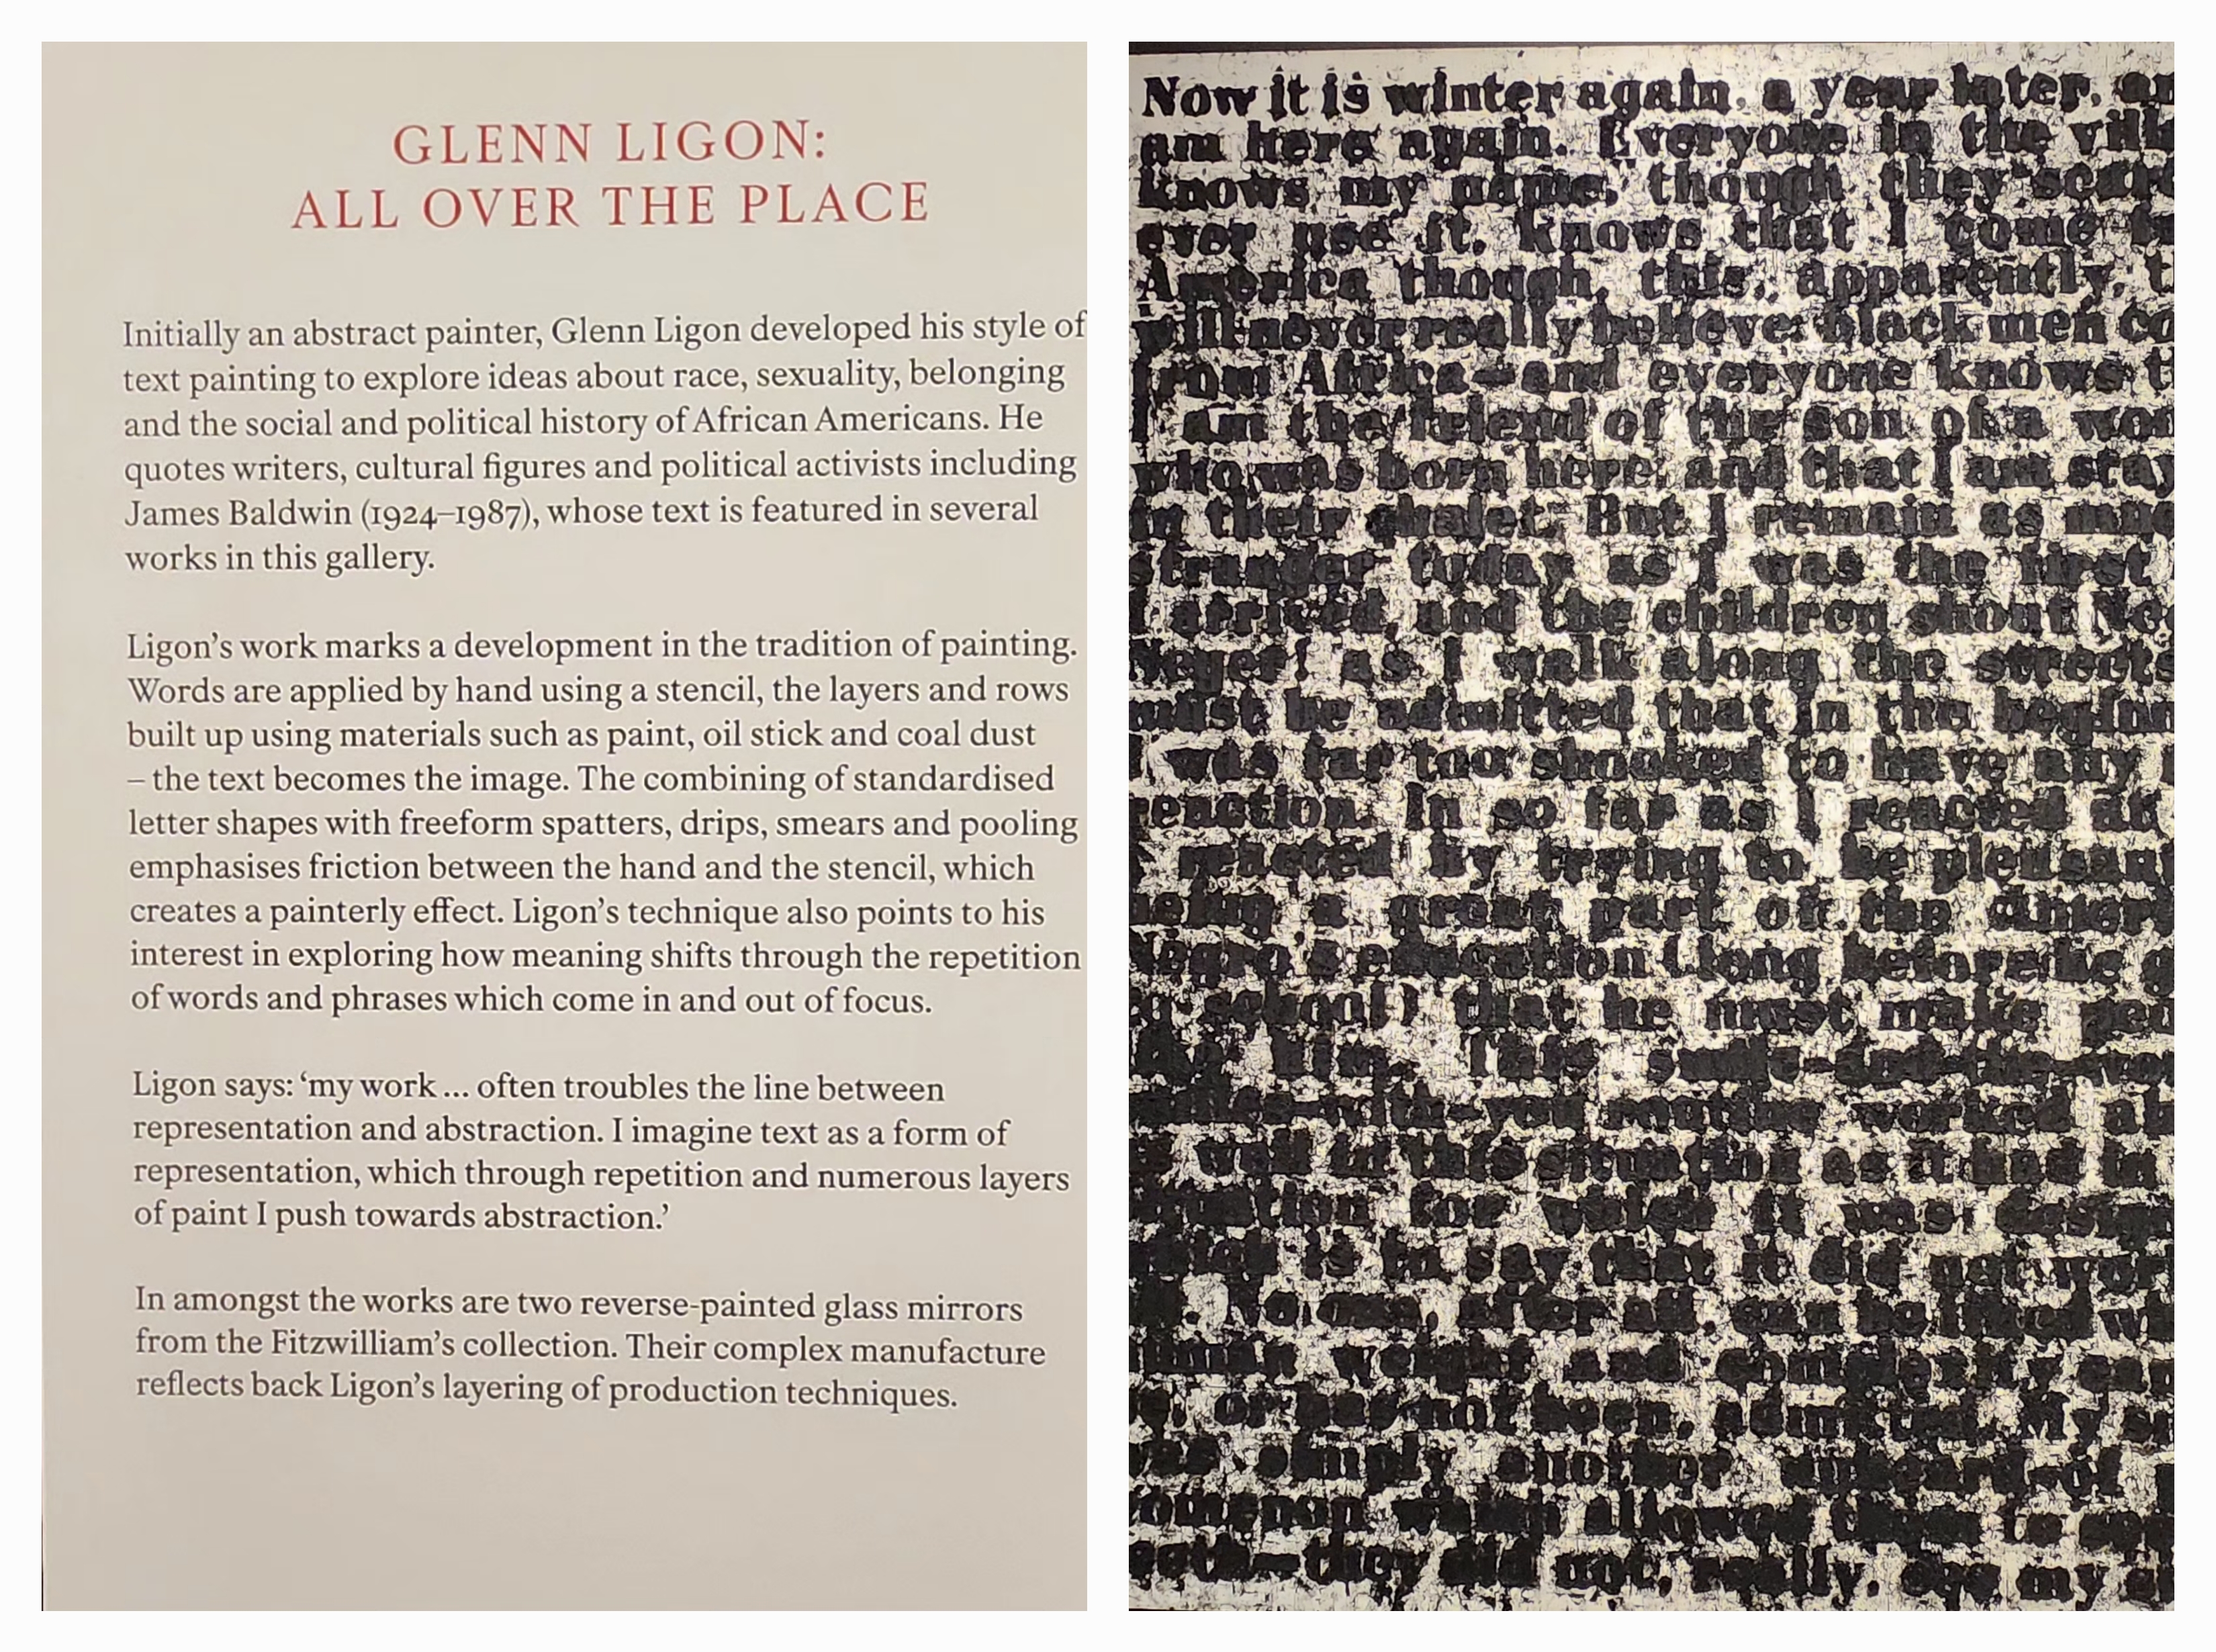 GLENN LIGON:
ALL OVER THE PLACE
Initially an abstract painter, Glenn Ligon developed his style of
text painting to explore ideas about race, sexuality, belonging
and the social and political history of African Americans. He
quotes writers, cultural figures and political activists including
James Baldwin (1924–1987), whose text is featured in several
works in this gallery.
Ligon’s work marks a development in the tradition of painting.
Words are applied by hand using a stencil, the layers and rows
built up using materials such as paint, oil stick and coal dust
– the text becomes the image. The combining of standardised
letter shapes with freeform spatters, drips, smears and pooling
emphasises friction between the hand and the stencil, which
creates a painterly effect. Ligon’s technique also points to his
interest in exploring how meaning shifts through the repetition
of words and phrases which come in and out of focus.
Ligon says: ‘my work ... often troubles the line between
representation and abstraction. I imagine text as a form of
representation, which through repetition and numerous layers
of paint I push towards abstraction.’
In amongst the works are two reverse-painted glass mirrors
from the Fitzwilliam’s collection. Their complex manufacture
reflects back Ligon’s layering of production techniques.
Now it is winter again, a year later, an
am here again. Everyone in the vill
knows my name, though they scarc
ever use it, knows that I come
America though, this, apparently, t
will never really believe: black men co
from Africa—and everyone knows t
I am the friend of the son of a wom
who was born here, and that I am stay
in their chalet. But I remain as muc
stranger today as I was the first
I arrived and the children shout Ne
Neger! as I walk along the streets
must be admitted that in the beginn
I was far too shocked to have any
reaction. In so far as I reacted at
I reacted by trying to be pleasant
being a great part of the Amer
Negro's education (long before he g
to school) that he must make peo
him. This smile-and-the-wor
smiles-with-you routine worked ab
well in this situation as it had in
situation for which it was design
is to say that it did not wor
No one, after all, can be liked wh
human weight and complexity can
or has not been, admitted. My
was simply another unheard-of
which allowed them to see
teeth—they did not, really, see my